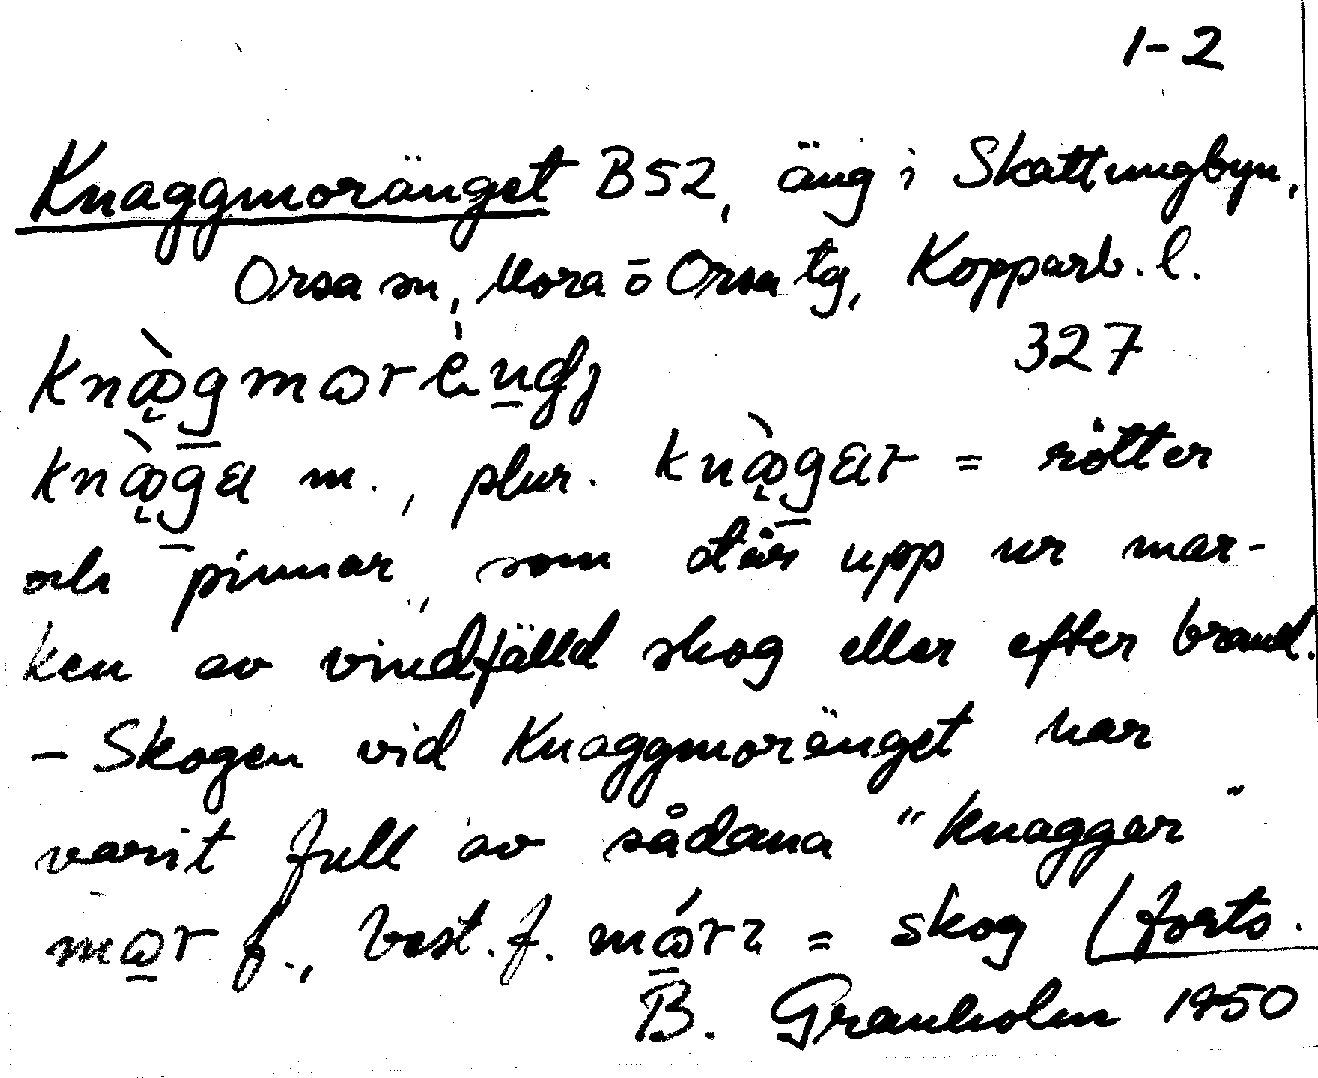 1-2
Knaggmoränget B52, äng i Skattungbyn,
Orsa sn, Mora o Orsa tg, Kopparb. l.
327
m., plur. = rötter
och pinnar, som står upp ur mar-
ken av vindfälld skog eller efter brand.
- Skogen vid Knaggmoränget har
varit full av sådana "knaggar"
f., best. f. = skog (forts.
B. Granholm 1950